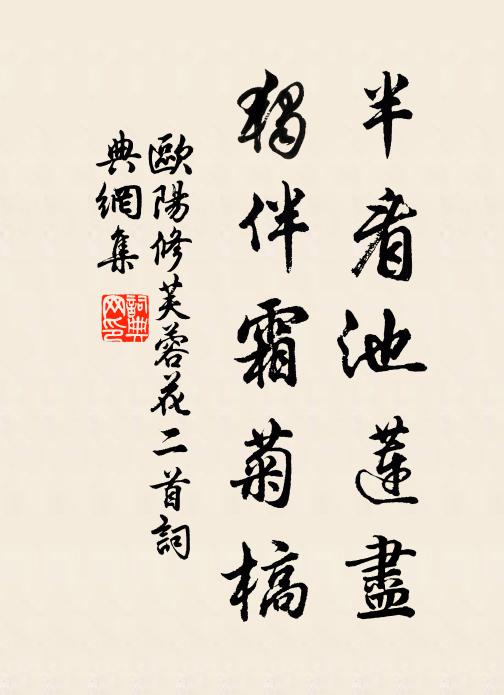 半看池蓮盡
獨伴霜菊槁
歐陽修芙蓉花二首詞
典網集
詞典
网印